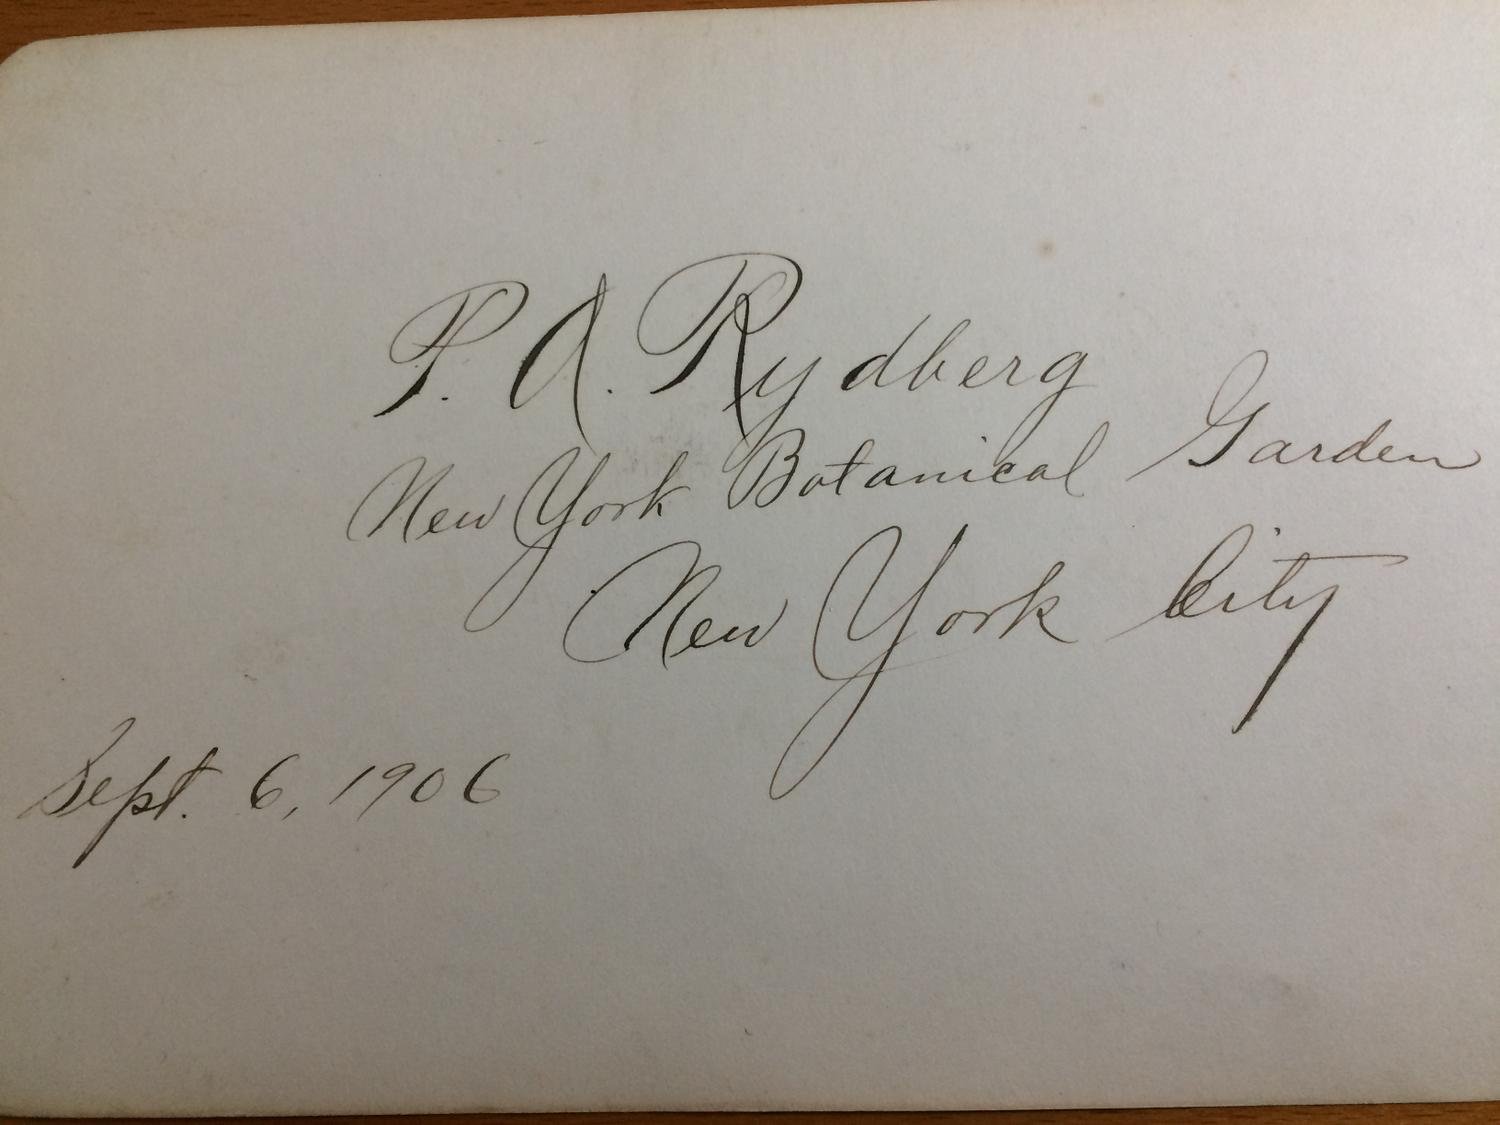 P. A. Rydberg
New York Botanical Garden
New York City
Sept. 6, 1906